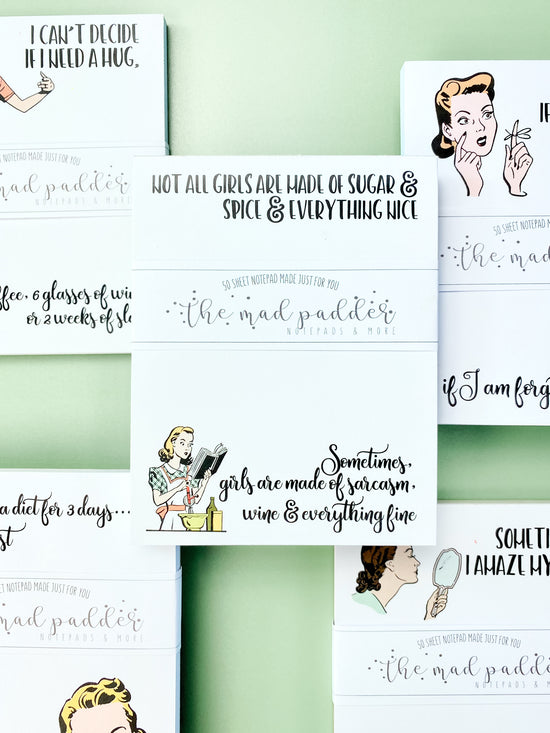 I CAN'T DECIDE
IF I NEED A HUG,
NOTEPAD MADE JUST FOR YOU
mad padder
NOTEPADS & MORE
6 glasses of
or 2 weeks of
NOT ALL GIRLS ARE MADE OF SUGAR &
SPICE & EVERYTHING NICE
50 SHEET NOTEPAD MADE JUST FOR YOU
the mad padder
NOTEPADS & MORE
Sometimes,
girls are made of sarcasm,
wine & everything fine
50 SHEET NOTEPAD M
the mad
if I am
a diet for 3 days...
NOTEPAD MADE JUST FOR YOU
mad padder
NOTEPADS & MORE
I AMAZE MY
50 SHEET NOTEPAD MADE JUST FOR YOU
the mad padder
NOTEPADS &